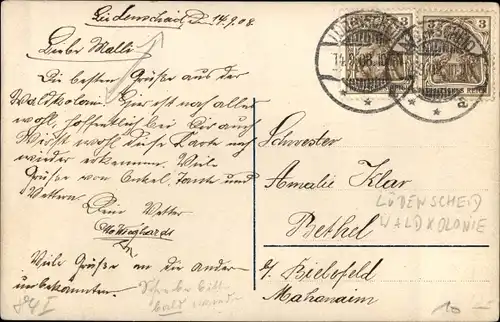 Lüdenscheid, den 14.9.08.
Liebe Malli
Die besten Grüße aus der
Waldkolonie. Hier ist noch alles
wohl, hoffentlich bei Dir auch
Wirst wohl diese Karte noch
wieder erkennen. Viele
Grüße von Onkel, Tante und
Vettern.
Dein Vetter
Viele Grüße an die andern
unbekannten.
Schreibe bitte
bald wieder
3 3
DEUTSCHES REICH
LÜDENSCHEID
14.9.08.
Schwester
Amalie Klar
Bethel
b/ Bielefeld
Mahanaim
LÜDENSCHEID
WALDKOLONIE